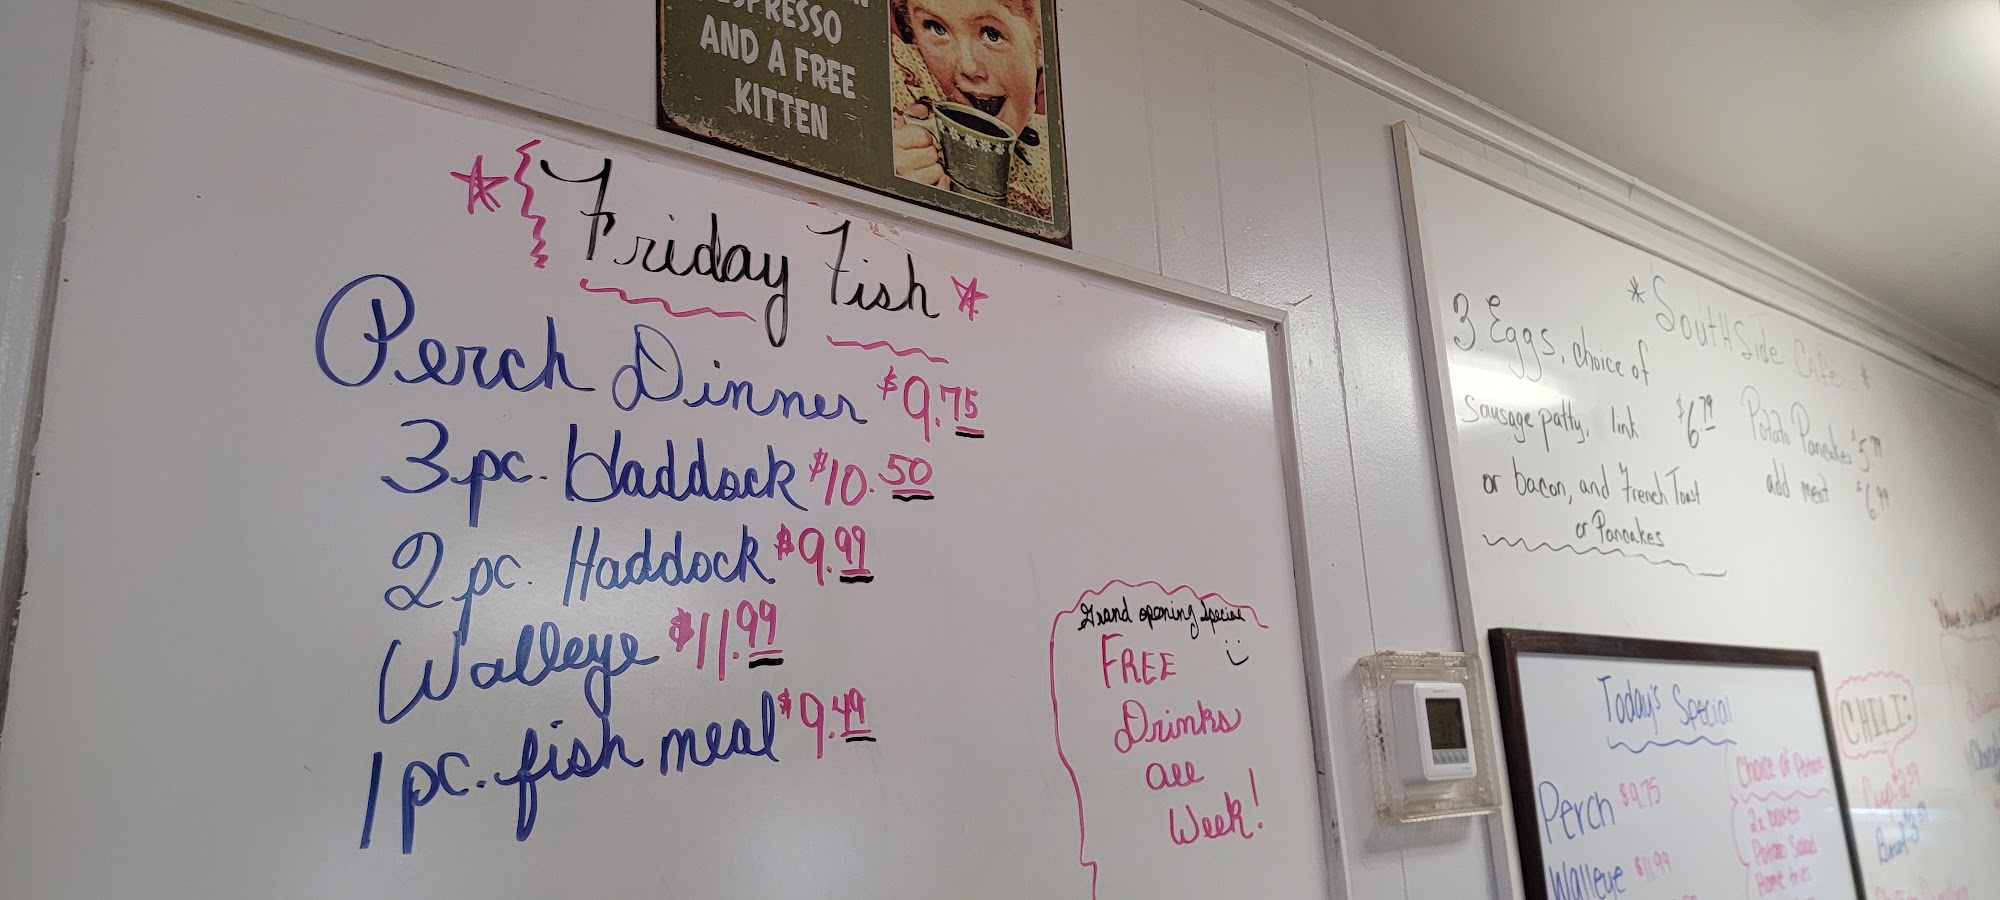 ESPRESSO
AND A FREE
KITTEN
Friday Fish
Perch Dinner $9.75
3 pc. Haddock $10.50
2 pc. Haddock $9.99
Walleye $11.99
1 pc. fish meal $9.49
Grand opening Special
FREE
Drinks
all
Week!
*SoutH Side Cafe*
3 Eggs, choice of
Sausage patty, link $6.79
or bacon, and French Toast
or Pancakes
Potato Pancakes $5.99
add meat $6.99
Today's Special
Perch $9.75
Walleye $11.99
Choice of Potato
Potato Salad
Home fries
CHILI:
Cup $2.59
Bowl $3.59